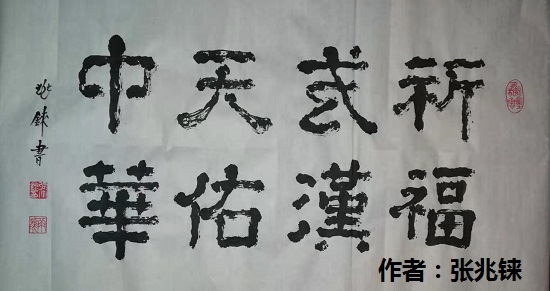 祈福
武漢
天佑
中華
兆錸書
作者：张兆铼